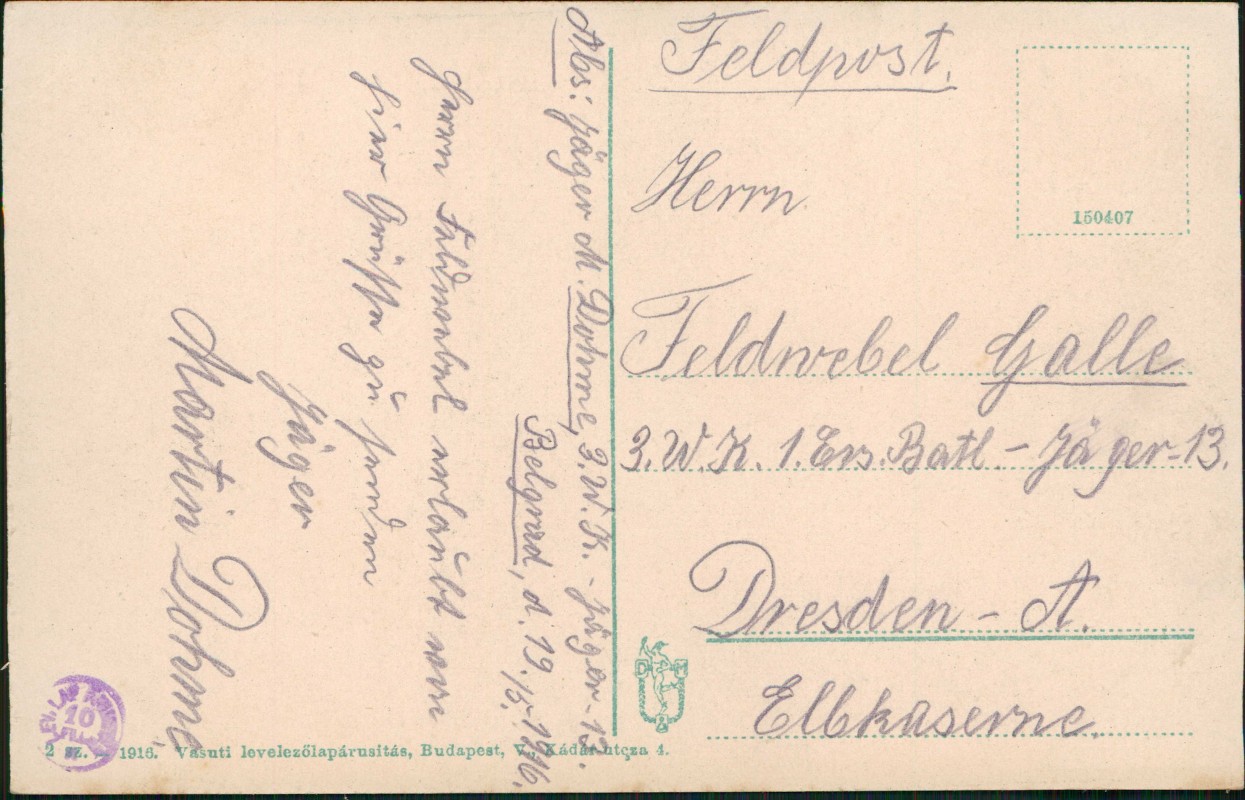 Abs: Jäger M. Dohme, 3. W. K. - Jäger-13.
Belgrad, d. 19./5. 1916.
Herrn Feldwebel erlaubt von
hier Grüsse zu senden
Jäger
Martin Dohme
Feldpost.
150407
Herrn
Feldwebel Galle
3. W. K. 1. Ers. Batl. - Jäger-13.
Dresden - A.
Elbkaserne.
D M
10
2 sz. — 1916. Vasuti levelezőlapárusitás, Budapest, V., Kádár-utcza 4.